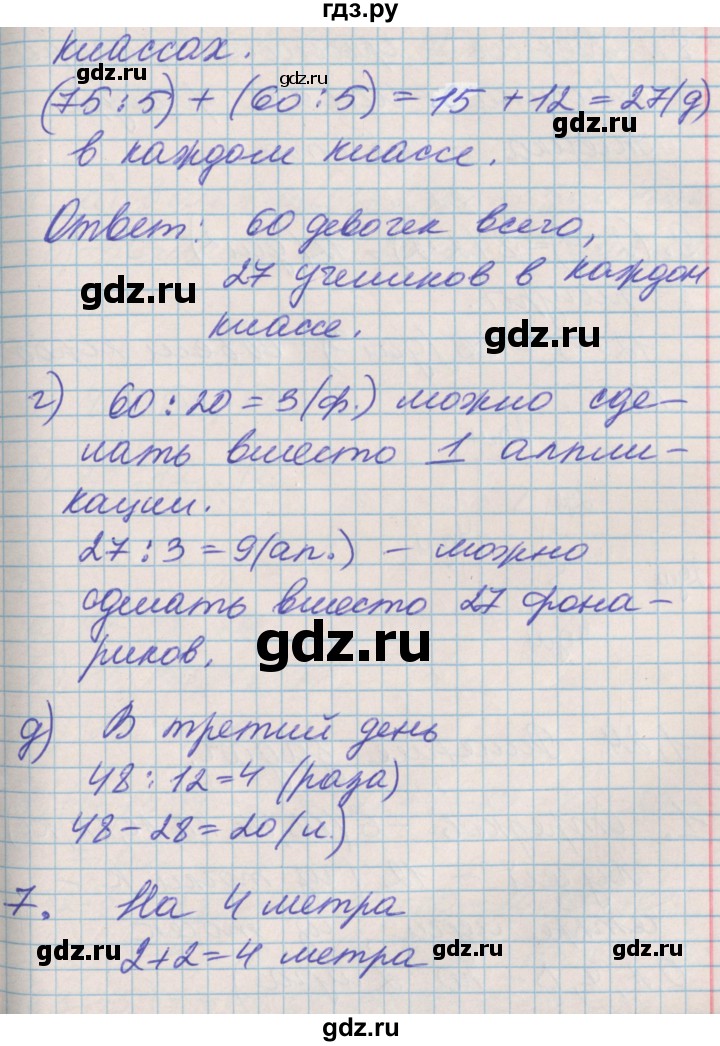 гдз.ру
классах.
gdz.ru gdz.ru
(75 : 5) + (60 : 5) = 15 + 12 = 27 (д)
gdz.ru
в каждом классе.
Ответ: 60 девочек всего,
27 учеников в каждом
gdz.ru
классе.
gdz.ru
г) 60 : 20 = 3 (ф.) можно сде-
лать вместо 1 аппли-
кации.
27 : 3 = 9 (ап.) - можно
сделать вместо 27 фона-
риков.
gdz.ru
д) В третий день
48 : 12 = 4 (раза)
48 - 28 = 20 (л.)
7. На 4 метра
2 + 2 = 4 метра
gdz.ru gdz.ru gdz.ru
gdz.ru